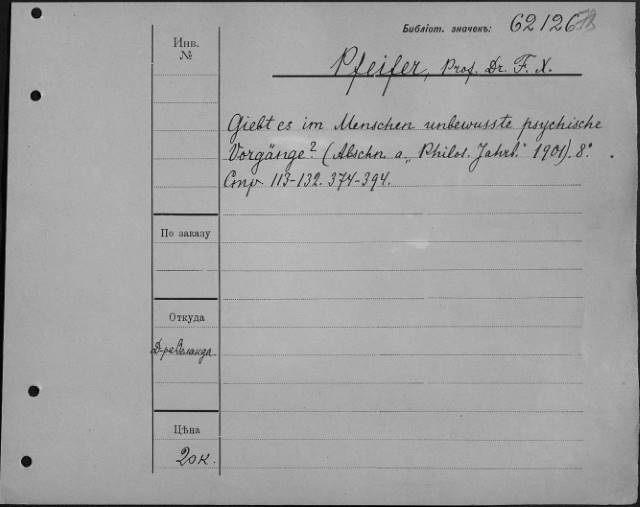 Библіот. значекъ: 62126
Инв.
№
Pfeifer, Prof. Dr. F. X.
Giebt es im Menschen unbewusste psychische
Vorgänge? (Abschn. a. „Philos. Jahrb.“ 1901). 8°.
Стр. 113-132. 374-394.
По заказу
Откуда
Д-ра
Цѣна
20 к.